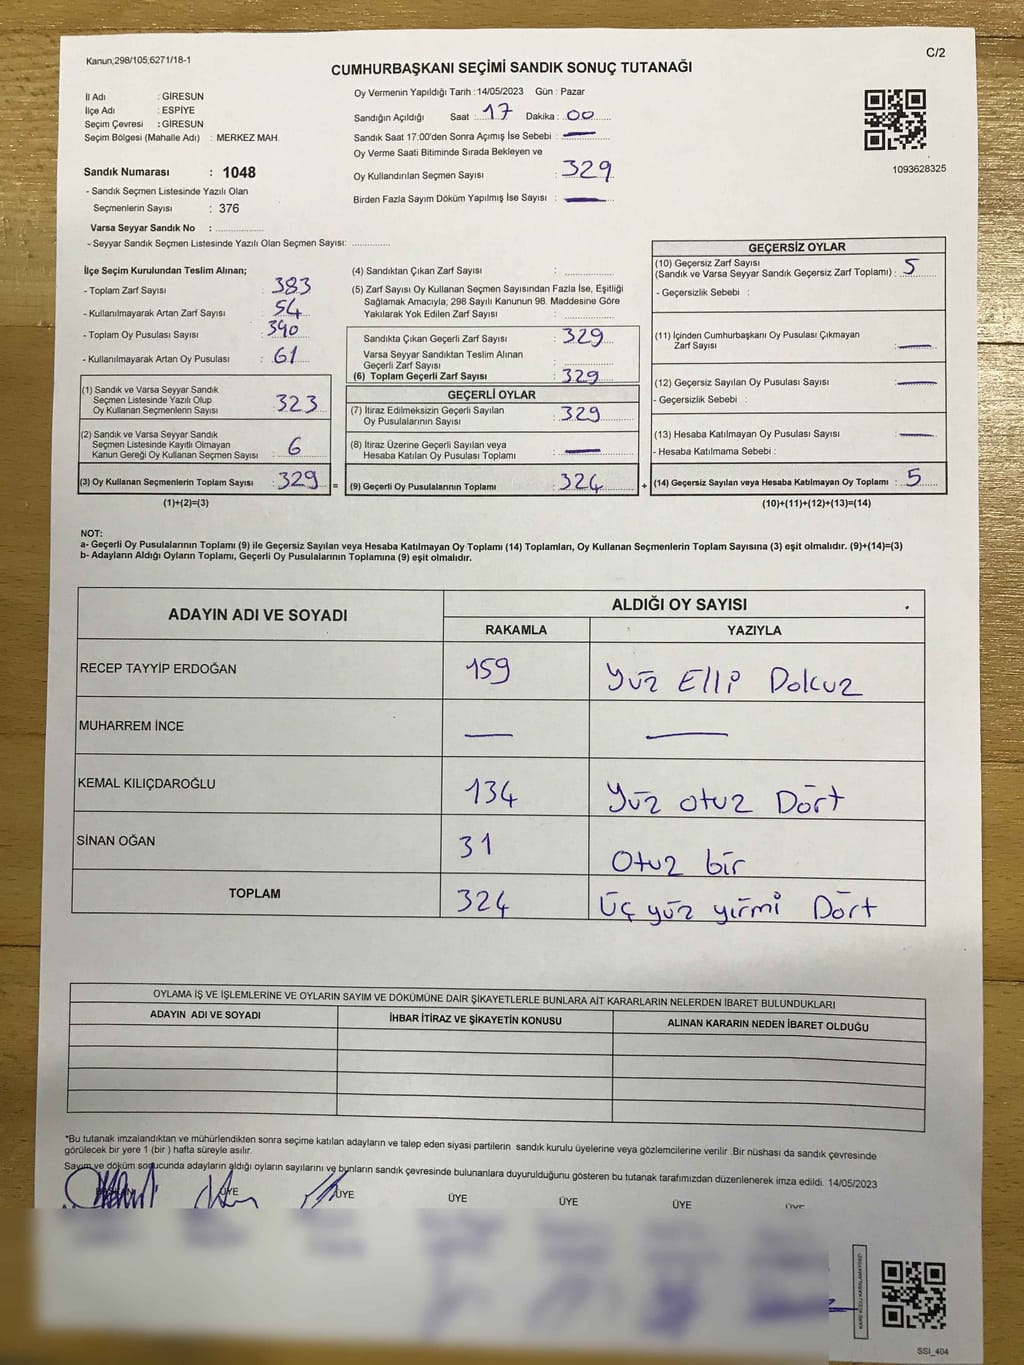 Kanun;298/105;6271/18-1
C/2
CUMHURBAŞKANI SEÇİMİ SANDIK SONUÇ TUTANAĞI
İl Adı : GİRESUN
İlçe Adı : ESPİYE
Seçim Çevresi : GİRESUN
Seçim Bölgesi (Mahalle Adı) : MERKEZ MAH.
Oy Vermenin Yapıldığı Tarih :14/05/2023 Gün : Pazar
Sandığın Açıldığı Saat : 17 Dakika : 00
Sandık Saat 17:00'den Sonra Açımış İse Sebebi : —
Oy Verme Saati Bitiminde Sırada Bekleyen ve
Oy Kullandırılan Seçmen Sayısı : 329
Birden Fazla Sayım Döküm Yapılmış İse Sayısı : —
1093628325
Sandık Numarası : 1048
- Sandık Seçmen Listesinde Yazılı Olan
Seçmenlerin Sayısı : 376
Varsa Seyyar Sandık No : ................
- Seyyar Sandık Seçmen Listesinde Yazılı Olan Seçmen Sayısı: .............
İlçe Seçim Kurulundan Teslim Alınan;
- Toplam Zarf Sayısı : 383
- Kullanılmayarak Artan Zarf Sayısı : 54
- Toplam Oy Pusulası Sayısı : 390
- Kullanılmayarak Artan Oy Pusulası : 61
(1) Sandık ve Varsa Seyyar Sandık
Seçmen Listesinde Yazılı Olup
Oy Kullanan Seçmenlerin Sayısı : 323
(2) Sandık ve Varsa Seyyar Sandık
Seçmen Listesinde Kayıtlı Olmayan
Kanun Gereği Oy Kullanan Seçmen Sayısı : 6
(3) Oy Kullanan Seçmenlerin Toplam Sayısı : 329 =
(1)+(2)=(3)
(4) Sandıktan Çıkan Zarf Sayısı : ................
(5) Zarf Sayısı Oy Kullanan Seçmen Sayısından Fazla İse, Eşitliği
Sağlamak Amacıyla; 298 Sayılı Kanunun 98. Maddesine Göre
Yakılarak Yok Edilen Zarf Sayısı : ................
Sandıkta Çıkan Geçerli Zarf Sayısı : 329
Varsa Seyyar Sandıktan Teslim Alınan
Geçerli Zarf Sayısı :
(6) Toplam Geçerli Zarf Sayısı : 329
GEÇERLİ OYLAR
(7) İtiraz Edilmeksizin Geçerli Sayılan
Oy Pusulalarının Sayısı : 329
(8) İtiraz Üzerine Geçerli Sayılan veya
Hesaba Katılan Oy Pusulası Toplamı : —
(9) Geçerli Oy Pusulalarının Toplamı : 324 +
GEÇERSİZ OYLAR
(10) Geçersiz Zarf Sayısı
(Sandık ve Varsa Seyyar Sandık Geçersiz Zarf Toplamı) : 5
- Geçersizlik Sebebi :
(11) İçinden Cumhurbaşkanı Oy Pusulası Çıkmayan
Zarf Sayısı : —
(12) Geçersiz Sayılan Oy Pusulası Sayısı : —
- Geçersizlik Sebebi :
(13) Hesaba Katılmayan Oy Pusulası Sayısı : —
- Hesaba Katılmama Sebebi :
(14) Geçersiz Sayılan veya Hesaba Katılmayan Oy Toplamı : 5
(10)+(11)+(12)+(13)=(14)
NOT:
a- Geçerli Oy Pusulalarının Toplamı (9) ile Geçersiz Sayılan veya Hesaba Katılmayan Oy Toplamı (14) Toplamları, Oy Kullanan Seçmenlerin Toplam Sayısına (3) eşit olmalıdır. (9)+(14)=(3)
b- Adayların Aldığı Oyların Toplamı, Geçerli Oy Pusulalarının Toplamına (9) eşit olmalıdır.
ADAYIN ADI VE SOYADI ALDIĞI OY SAYISI
RAKAMLA YAZIYLA
RECEP TAYYİP ERDOĞAN 159 Yüz Elli Dokuz
MUHARREM İNCE — —
KEMAL KILIÇDAROĞLU 134 Yüz otuz Dört
SİNAN OĞAN 31 Otuz bir
TOPLAM 324 Üç yüz yirmi Dört
OYLAMA İŞ VE İŞLEMLERİNE VE OYLARIN SAYIM VE DÖKÜMÜNE DAİR ŞİKAYETLERLE BUNLARA AİT KARARLARIN NELERDEN İBARET BULUNDUKLARI
ADAYIN ADI VE SOYADI İHBAR İTİRAZ VE ŞİKAYETİN KONUSU ALINAN KARARIN NEDEN İBARET OLDUĞU
*Bu tutanak imzalandıktan ve mühürlendikten sonra seçime katılan adayların ve talep eden siyasi partilerin sandık kurulu üyelerine veya gözlemcilerine verilir .Bir nüshası da sandık çevresinde
görülecek bir yere 1 (bir ) hafta süreyle asılır.
Sayım ve döküm sonucunda adayların aldığı oyların sayılarını ve bunların sandık çevresinde bulunanlara duyurulduğunu gösteren bu tutanak tarafımızdan düzenlenerek imza edildi. 14/05/2023
ÜYE ÜYE ÜYE ÜYE ÜYE ÜYE
KARE KODU KARALAMAYINIZ!
SSI_404